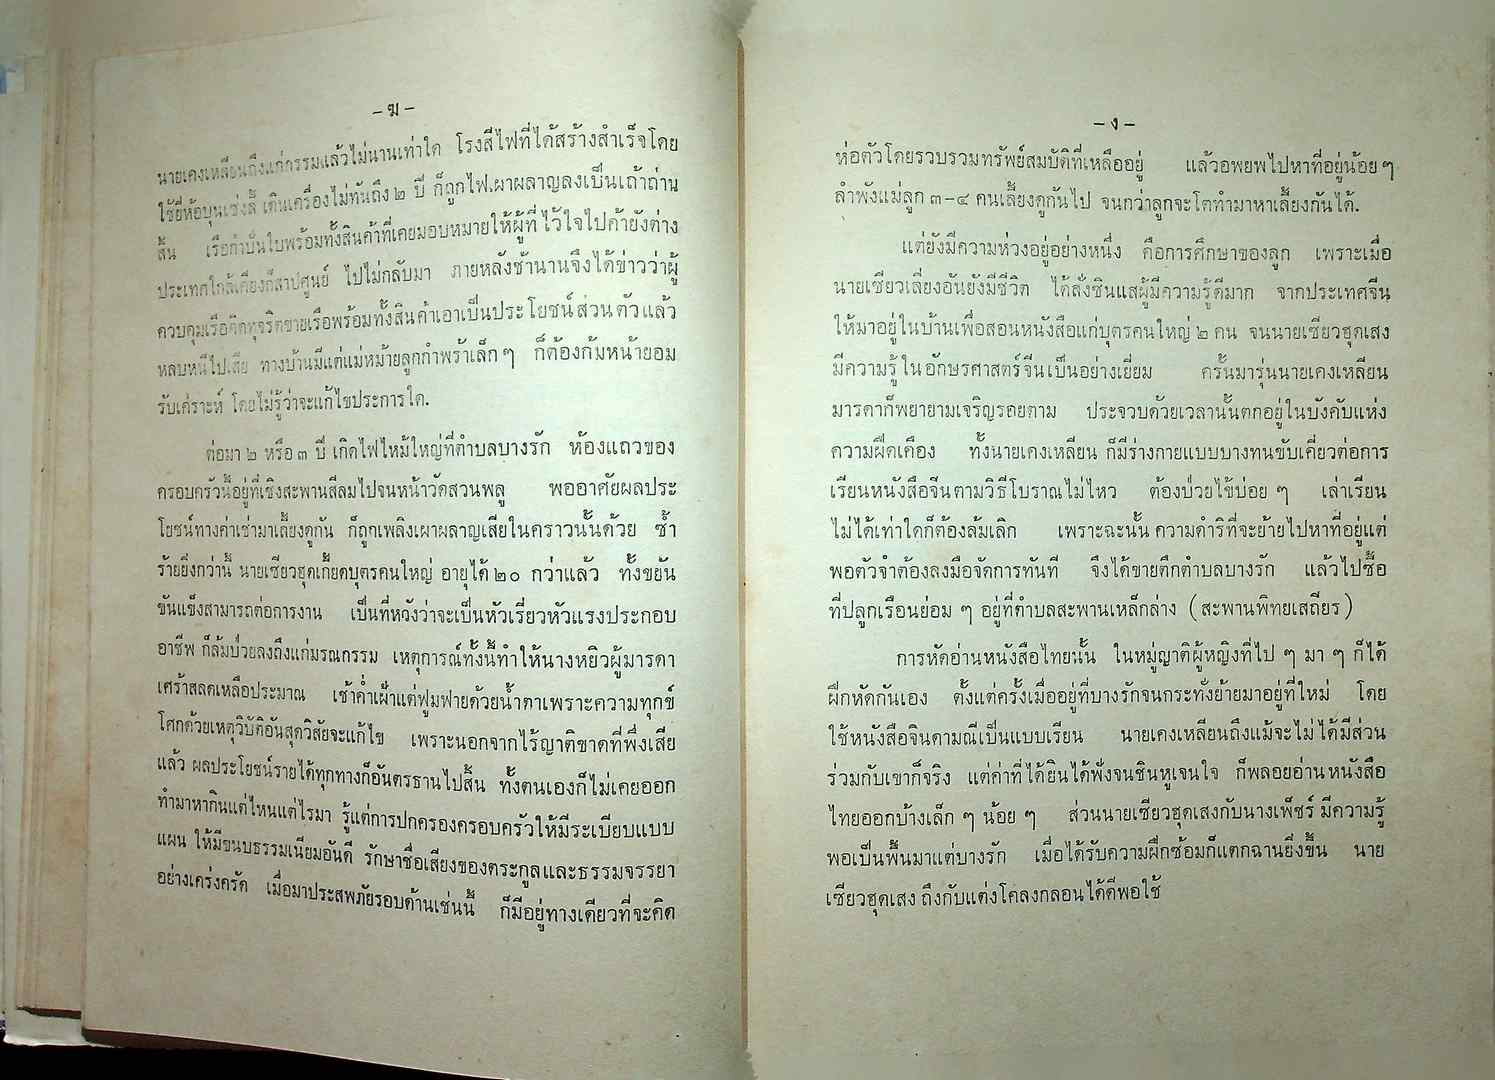 – ฆ –
นายเคงเหลียนถึงแก่กรรมแล้วไม่นานเท่าใด โรงสีไฟที่ได้สร้างสำเร็จโดย
ใช้ยี่ห้อบุนเช่งลี้ เดินเครื่องไม่ทันถึง ๒ ปี ก็ถูกไฟ.ผาผลาญลงเป็นเถ้าถ่าน
สิ้น เรือกำปั่นใบพร้อมทั้งสินค้าที่เคยมอบหมายให้ผู้ที่ไว้ใจไปค้ายังต่าง
ประเทศใกล้เคียงก็สาปศูนย์ ไปไม่กลับมา ภายหลังช้านานจึงได้ข่าวว่าผู้
ควบคุมเรือคิดทุจริตขายเรือพร้อมทั้งสินค้าเอาเป็นประโยชน์ส่วนตัวแล้ว
หลบหนีไปเสีย ทางบ้านมีแต่แม่หม้ายลูกกำพร้าเล็ก ๆ ก็ต้องก้มหน้ายอม
รับเคราะห์ โดยไม่รู้ว่าจะแก้ไขประการใด.
ต่อมา ๒ หรือ ๓ ปี เกิดไฟไหม้ใหญ่ที่ตำบลบางรัก ห้องแถวของ
ครอบครัวนี้อยู่ที่เชิงสะพานสีลมไปจนหน้าวัดสวนพลู พออาศัยผลประ
โยชน์ทางค่าเช่ามาเลี้ยงดูกัน ก็ถูกเพลิงเผาผลาญเสียในคราวนั้นด้วย ซ้ำ
ร้ายยิ่งกว่านี้ นายเซียวฮุดเกี้ยดบุตรคนใหญ่ อายุได้ ๒๐ กว่าแล้ว ทั้งขยัน
ขันแข็งสามารถต่อการงาน เป็นที่หวังว่าจะเป็นหัวเรี่ยวหัวแรงประกอบ
อาชีพ ก็ล้มป่วยลงถึงแก่มรณกรรม เหตุการณ์ทั้งนี้ทำให้นางหยิวผู้มารดา
เศร้าสลดเหลือประมาณ เช้าค่ำเฝ้าแต่ฟูมฟายด้วยน้ำตาเพราะความทุกข์
โศกด้วยเหตุวิบัติอันสุดวิสัยจะแก้ไข เพราะนอกจากไร้ญาติขาดที่พึ่งเสีย
แล้ว ผลประโยชน์รายได้ทุกทางก็อันตรธานไปสิ้น ทั้งตนเองก็ไม่เคยออก
ทำมาหากินแต่ไหนแต่ไรมา รู้แต่การปกครองครอบครัวให้มีระเบียบแบบ
แผน ให้มีขนบธรรมเนียมอันดี รักษาชื่อเสียงของตระกูลและธรรมจรรยา
อย่างเคร่งครัด เมื่อมาประสพภัยรอบด้านเช่นนี้ ก็มีอยู่ทางเดียวที่จะคิด
– ง –
ห่อตัวโดยรวบรวมทรัพย์สมบัติที่เหลืออยู่ แล้วอพยพไปหาที่อยู่น้อย ๆ
ลำพังแม่ลูก ๓–๔ คนเลี้ยงดูกันไป จนกว่าลูกจะโตทำมาหาเลี้ยงกันได้.
แต่ยังมีความห่วงอยู่อย่างหนึ่ง คือการศึกษาของลูก เพราะเมื่อ
นายเซียวเลี่ยงอันยังมีชีวิต ได้สั่งซินแสผู้มีความรู้ดีมาก จากประเทศจีน
ให้มาอยู่ในบ้านเพื่อสอนหนังสือแก่บุตรคนใหญ่ ๒ คน จนนายเซียวฮุดเสง
มีความรู้ในอักษรศาสตร์จีนเป็นอย่างเยี่ยม ครั้นมารุ่นนายเคงเหลียน
มารดาก็พยายามเจริญรอยตาม ประจวบด้วยเวลานั้นตกอยู่ในบังคับแห่ง
ความฝืดเคือง ทั้งนายเคงเหลียน ก็มีร่างกายแบบบางทนขับเคี่ยวต่อการ
เรียนหนังสือจีนตามวิธีโบราณไม่ไหว ต้องป่วยไข้บ่อย ๆ เล่าเรียน
ไม่ได้เท่าใดก็ต้องล้มเลิก เพราะฉะนั้น ความดำริที่จะย้ายไปหาที่อยู่แต่
พอตัวจำต้องลงมือจัดการทันที จึงได้ขายตึกตำบลบางรัก แล้วไปซื้อ
ที่ปลูกเรือนย่อม ๆ อยู่ที่ตำบลสะพานเหล็กล่าง (สะพานพิทยเสถียร)
การหัดอ่านหนังสือไทยนั้น ในหมู่ญาติผู้หญิงที่ไป ๆ มา ๆ ก็ได้
ฝึกหัดกันเอง ตั้งแต่ครั้งเมื่ออยู่ที่บางรักจนกระทั่งย้ายมาอยู่ที่ใหม่ โดย
ใช้หนังสือจินดามณีเป็นแบบเรียน นายเคงเหลียนถึงแม้จะไม่ได้มีส่วน
ร่วมกับเขาก็จริง แต่ค่าที่ได้ยินได้ฟังจนชินหูเจนใจ ก็พลอยอ่านหนังสือ
ไทยออกบ้างเล็ก ๆ น้อย ๆ ส่วนนายเซียวฮุดเสงกับนางเพ็ชร์ มีความรู้
พอเป็นพื้นมาแต่บางรัก เมื่อได้รับความฝึกซ้อมก็แตกฉานยิ่งขึ้น นาย
เซียวฮุดเสง ถึงกับแต่งโคลงกลอนได้ดีพอใช้